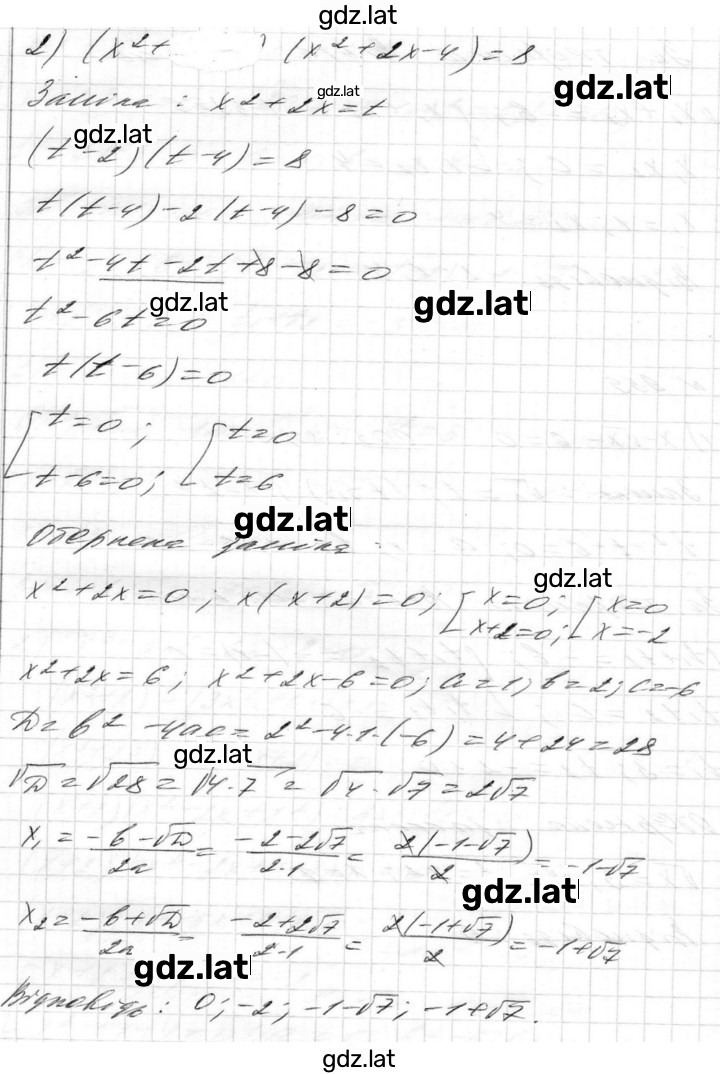 gdz.lat
2) (x²+ ) (x²+2x-4)=8
gdz.lat
Заміна: x²+2x=t
gdz.lat
gdz.lat
(t-2)(t-4)=8
t(t-4)-2(t-4)-8=0
t²-4t-2t+8-8=0
gdz.lat
gdz.lat
t²-6t=0
t(t-6)=0
[t=0; [t=0
t-6=0; t=6
gdz.lat
Обернена заміна:
gdz.lat
x²+2x=0; x(x+2)=0; [x=0; [x=0
x+2=0; x=-2
x²+2x=6; x²+2x-6=0; a=1; b=2; c=-6
D=b²-4ac=2²-4·1·(-6)=4+24=28
gdz.lat
√D=√28=√4·7=√4·√7=2√7
x₁=(-b-√D)/2a=(-2-2√7)/2·1=2(-1-√7)/2=-1-√7
gdz.lat
x₂=(-b+√D)/2a=(-2+2√7)/2·1=2(-1+√7)/2=-1+√7
gdz.lat
Відповідь: 0; -2; -1-√7; -1+√7.
gdz.lat